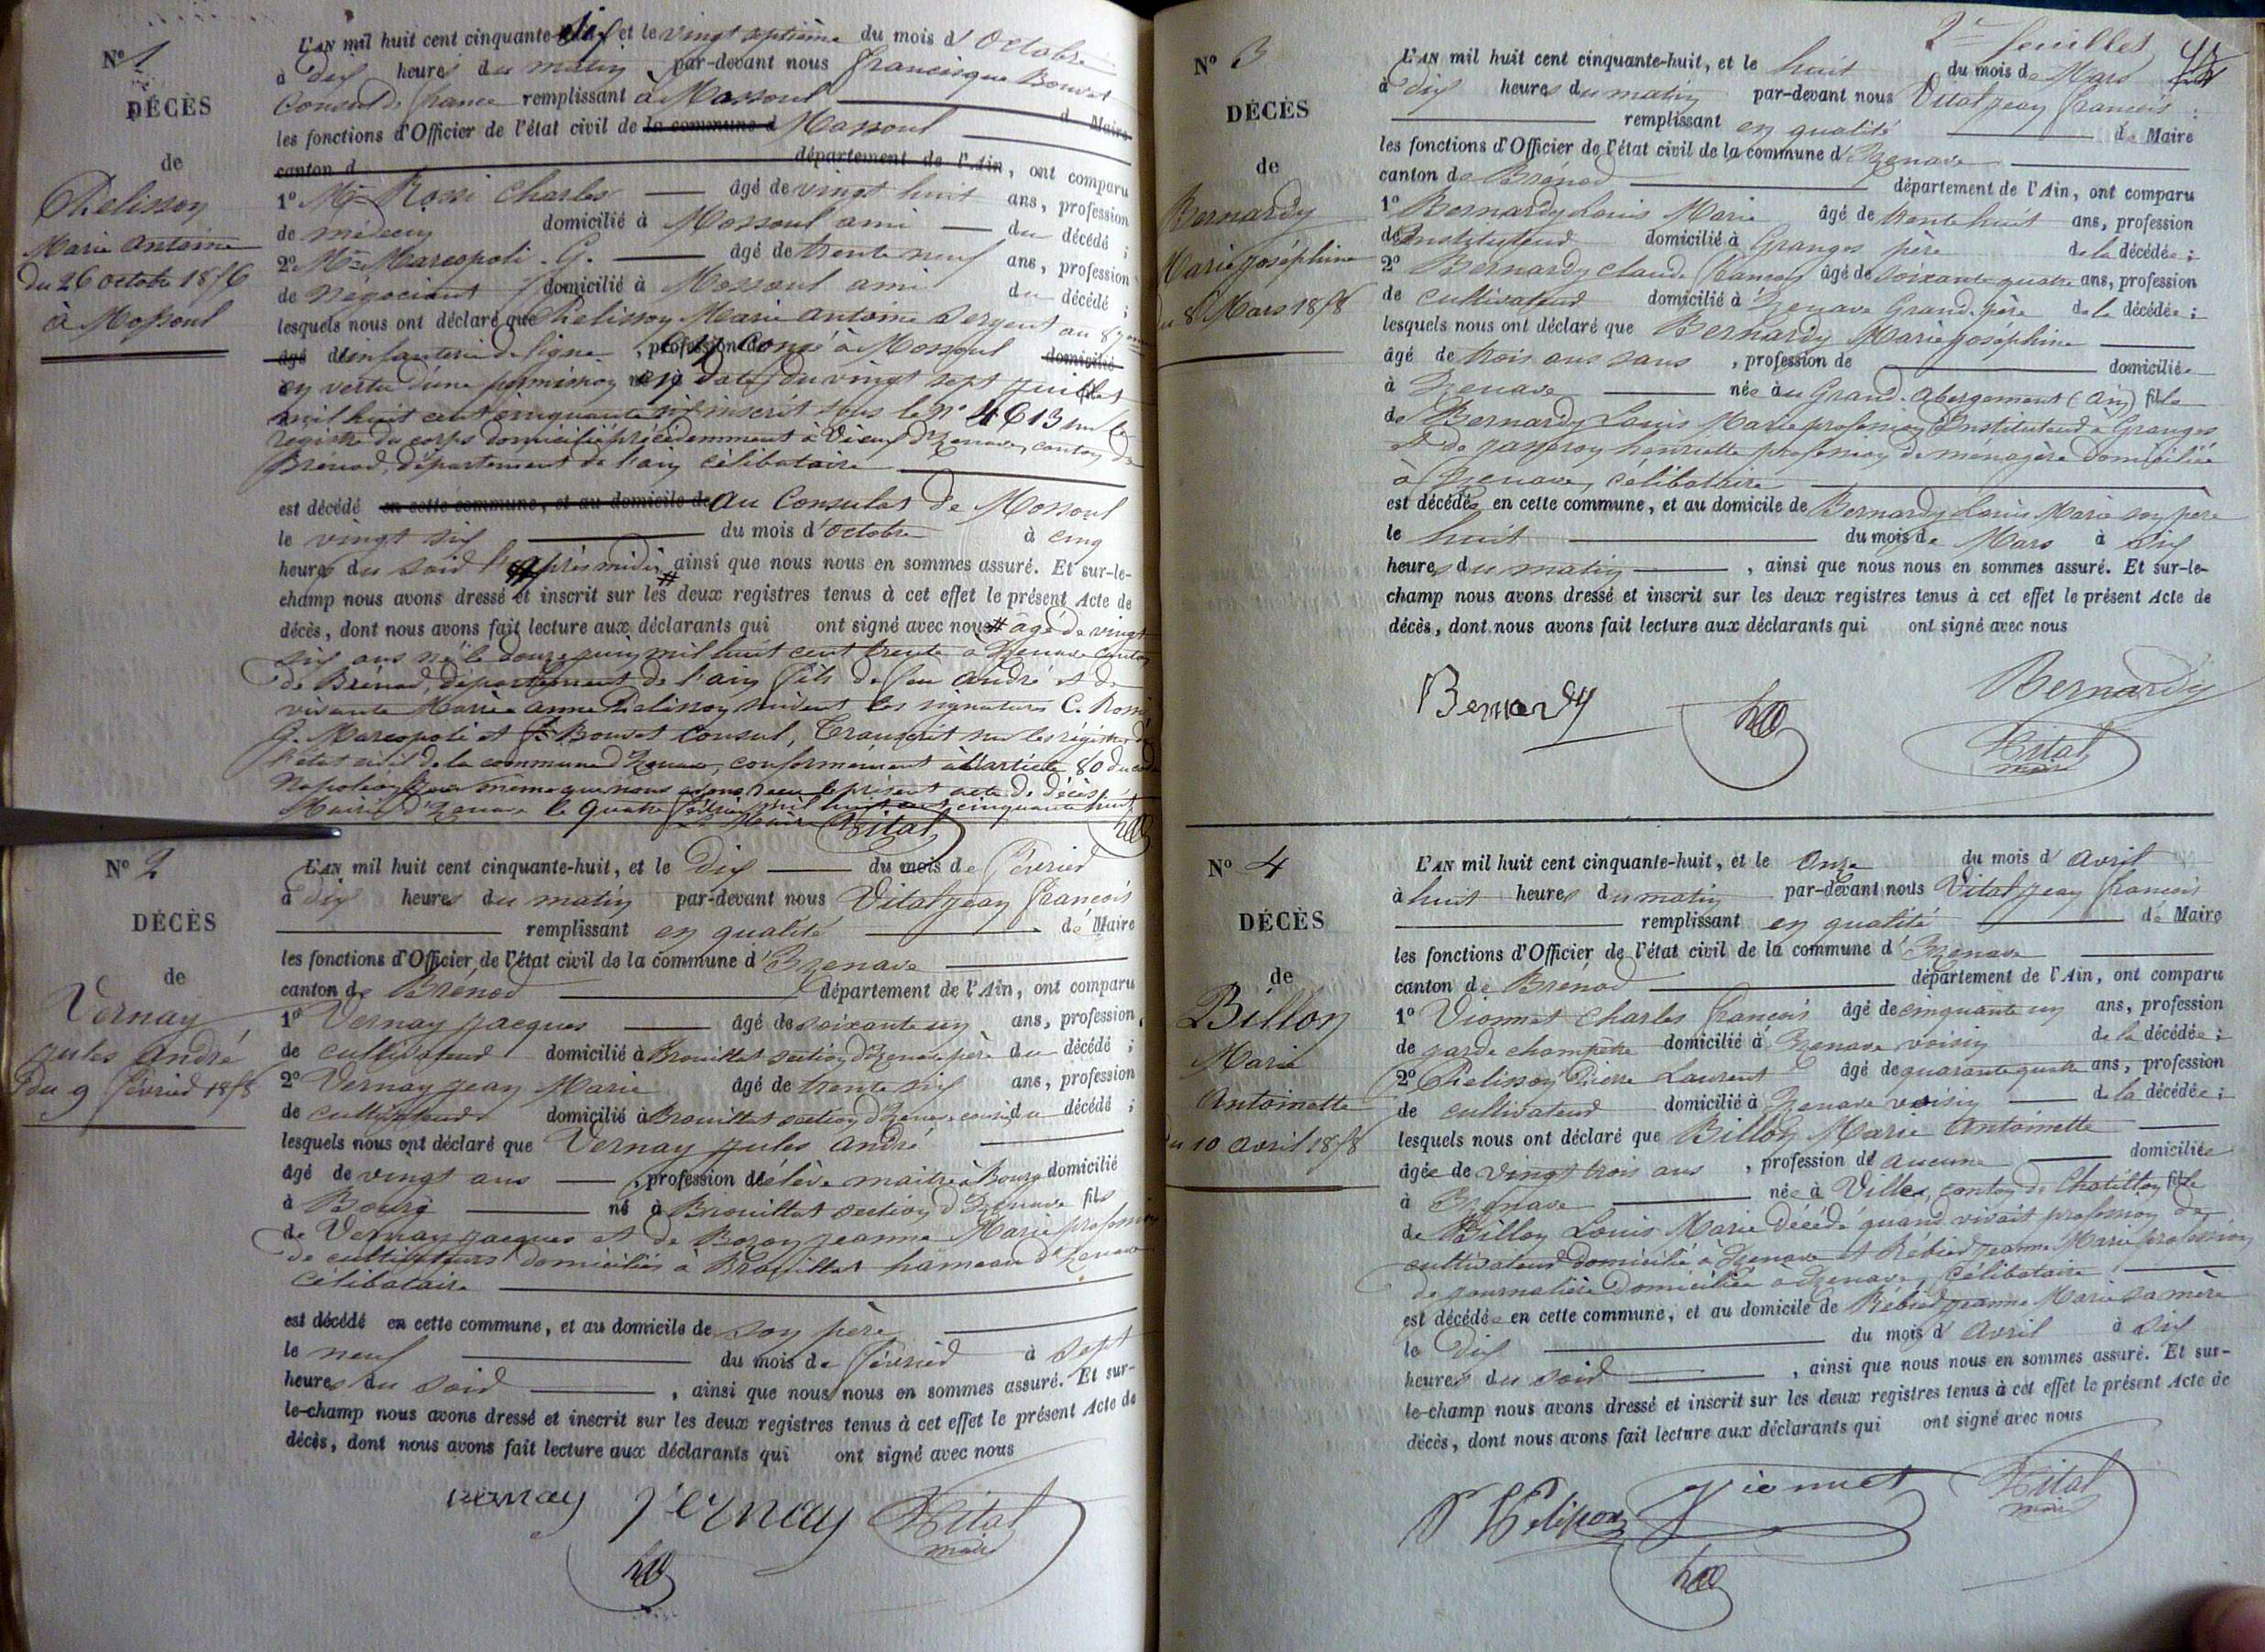 N° 1
DÉCÈS
de
Pelisson
Marie Antoine
du 26 octobre 1856
à Mossoul
L'AN mil huit cent cinquante-six et le vingt septième du mois d'Octobre
à dix heures du matin par-devant nous Francisque Bouvet
Consul de France remplissant à Mossoul d Maire
les fonctions d'Officier de l'état civil de la commune d Mossoul
canton d département de l'Ain, ont comparu
1° Mr Rossi Charles âgé de vingt huit ans, profession
de médecin domicilié à Mossoul ami du décédé ;
2° Mr Marcopoli G. âgé de trente neuf ans, profession
de Négociant domicilié à Mossoul ami du décédé ;
lesquels nous ont déclaré que Pelisson Marie antoine Sergent au
âgé d'infanterie de ligne, profession de en Congé à Mossoul domicilié
en vertu d'une permission en date du vingt sept juillet
mil huit cent cinquante six inscrit sous le N° 4613 sur le
registre du corps domicilié précédemment à Vieux d'Izenave, canton de
Brénod, département de l'ain célibataire
est décédé en cette commune, et au domicile de au Consulat de Mossoul
le vingt six du mois d'octobre à cinq
heures du soir l'après midi, ainsi que nous nous en sommes assuré. Et sur-le-
champ nous avons dressé et inscrit sur les deux registres tenus à cet effet le présent Acte de
décès, dont nous avons fait lecture aux déclarants qui ont signé avec nous # agé de vingt
six ans né le douze juin mil huit cent trente à Izenave canton
de Brénod, département de l'ain fils de feu andré et de
vivante Marie anne Pelisson suivent les signatures C. Rossi
G. Marcopoli et F. Bouvet Consul, Transcrit sur les régistres de
l'état civil de la commune d'Izenave, conformément à l'article 80 du code
Napoléon, jour même que nous avons reçu le présent acte de décès
Mairie d'Izenave le quatre février mil huit cent cinquante huit
Le Maire Vital
N° 2
DÉCÈS
de
Vernay
jules André
du 9 février 1858
L'AN mil huit cent cinquante-huit, et le Dix du mois de Février
à dix heures du matin par-devant nous Vital jean François
remplissant en qualité de Maire
les fonctions d'Officier de l'état civil de la commune d'Izenave
canton de Brénod département de l'Ain, ont comparu
1° Vernay jacques âgé de soixante un ans, profession
de cultivateur domicilié à Brouillat section d'Izenave père du décédé ;
2° Vernay jean Marie âgé de trente six ans, profession
de cultivateur domicilié à Brouillat section d'Izenave cousin du décédé ;
lesquels nous ont déclaré que Vernay jules andré
âgé de vingt ans, profession d'élève maitre à Bourg domicilié
à Bourg né à Brouillat section d'Izenave fils
de Vernay jacques et de Bozon jeanne Marie profession
de cultivateurs domiciliés à Brouillat hameau d'Izenave
célibataire
est décédé en cette commune, et au domicile de son père
le neuf du mois de février à sept
heures du soir, ainsi que nous nous en sommes assuré. Et sur-
le-champ nous avons dressé et inscrit sur les deux registres tenus à cet effet le présent Acte de
décès, dont nous avons fait lecture aux déclarants qui ont signé avec nous
vernay Vernay Vital
maire
2e feuillet
N° 3
DÉCÈS
de
Bernardy
Marie joséphine
du 8 Mars 1858
L'AN mil huit cent cinquante-huit, et le huit du mois de Mars
à dix heures du matin par-devant nous Vital jean françois
remplissant en qualité de Maire
les fonctions d'Officier de l'état civil de la commune d'Izenave
canton de Brénod département de l'Ain, ont comparu
1° Bernardy Louis Marie âgé de trente huit ans, profession
de Instituteur domicilié à Granges père de la décédée ;
2° Bernardy claude françois âgé de soixante quatre ans, profession
de cultivateur domicilié à Izenave Grand-père de la décédée ;
lesquels nous ont déclaré que Bernardy Marie joséphine
âgé de trois ans sans, profession de domiciliée
à Izenave née au Grand-abergement (ain) fille
de Bernardy Louis Marie profession d'Instituteur à Granges
et de henriette profession de ménagère domiciliée
à Izenave, célibataire
est décédée en cette commune, et au domicile de Bernardy Louis Marie son père
le huit du mois de Mars à six
heures du matin, ainsi que nous nous en sommes assuré. Et sur-le-
champ nous avons dressé et inscrit sur les deux registres tenus à cet effet le présent Acte de
décès, dont nous avons fait lecture aux déclarants qui ont signé avec nous
Bernardy Bernardy
Vital
maire
N° 4
DÉCÈS
de
Billon
Marie
Antoinette
du 10 avril 1858
L'AN mil huit cent cinquante-huit, et le Onze du mois d'avril
à huit heures du matin par-devant nous Vital jean françois
remplissant en qualité de Maire
les fonctions d'Officier de l'état civil de la commune d'Izenave
canton de Brénod département de l'Ain, ont comparu
1° Vionnet Charles françois âgé de cinquante un ans, profession
de garde champêtre domicilié à Izenave voisin de la décédée ;
2° Pelisson Pierre Laurent âgé de quarante quatre ans, profession
de cultivateur domicilié à Izenave voisin de la décédée ;
lesquels nous ont déclaré que Billon Marie Antoinette
âgée de vingt trois ans, profession de aucune domiciliée
à Izenave née à Villes, canton de Châtillon fille
de Billon Louis Marie décédé quand vivait profession de
cultivateur domicilié à Izenave et Rébier jeanne Marie profession
de journalière domiciliée à Izenave, célibataire
est décédée en cette commune, et au domicile de Rébier jeanne Marie sa mère
le Dix du mois d'avril à six
heures du soir, ainsi que nous nous en sommes assuré. Et sur-
le-champ nous avons dressé et inscrit sur les deux registres tenus à cet effet le présent Acte de
décès, dont nous avons fait lecture aux déclarants qui ont signé avec nous
P Pelisson Vionnet Vital
maire